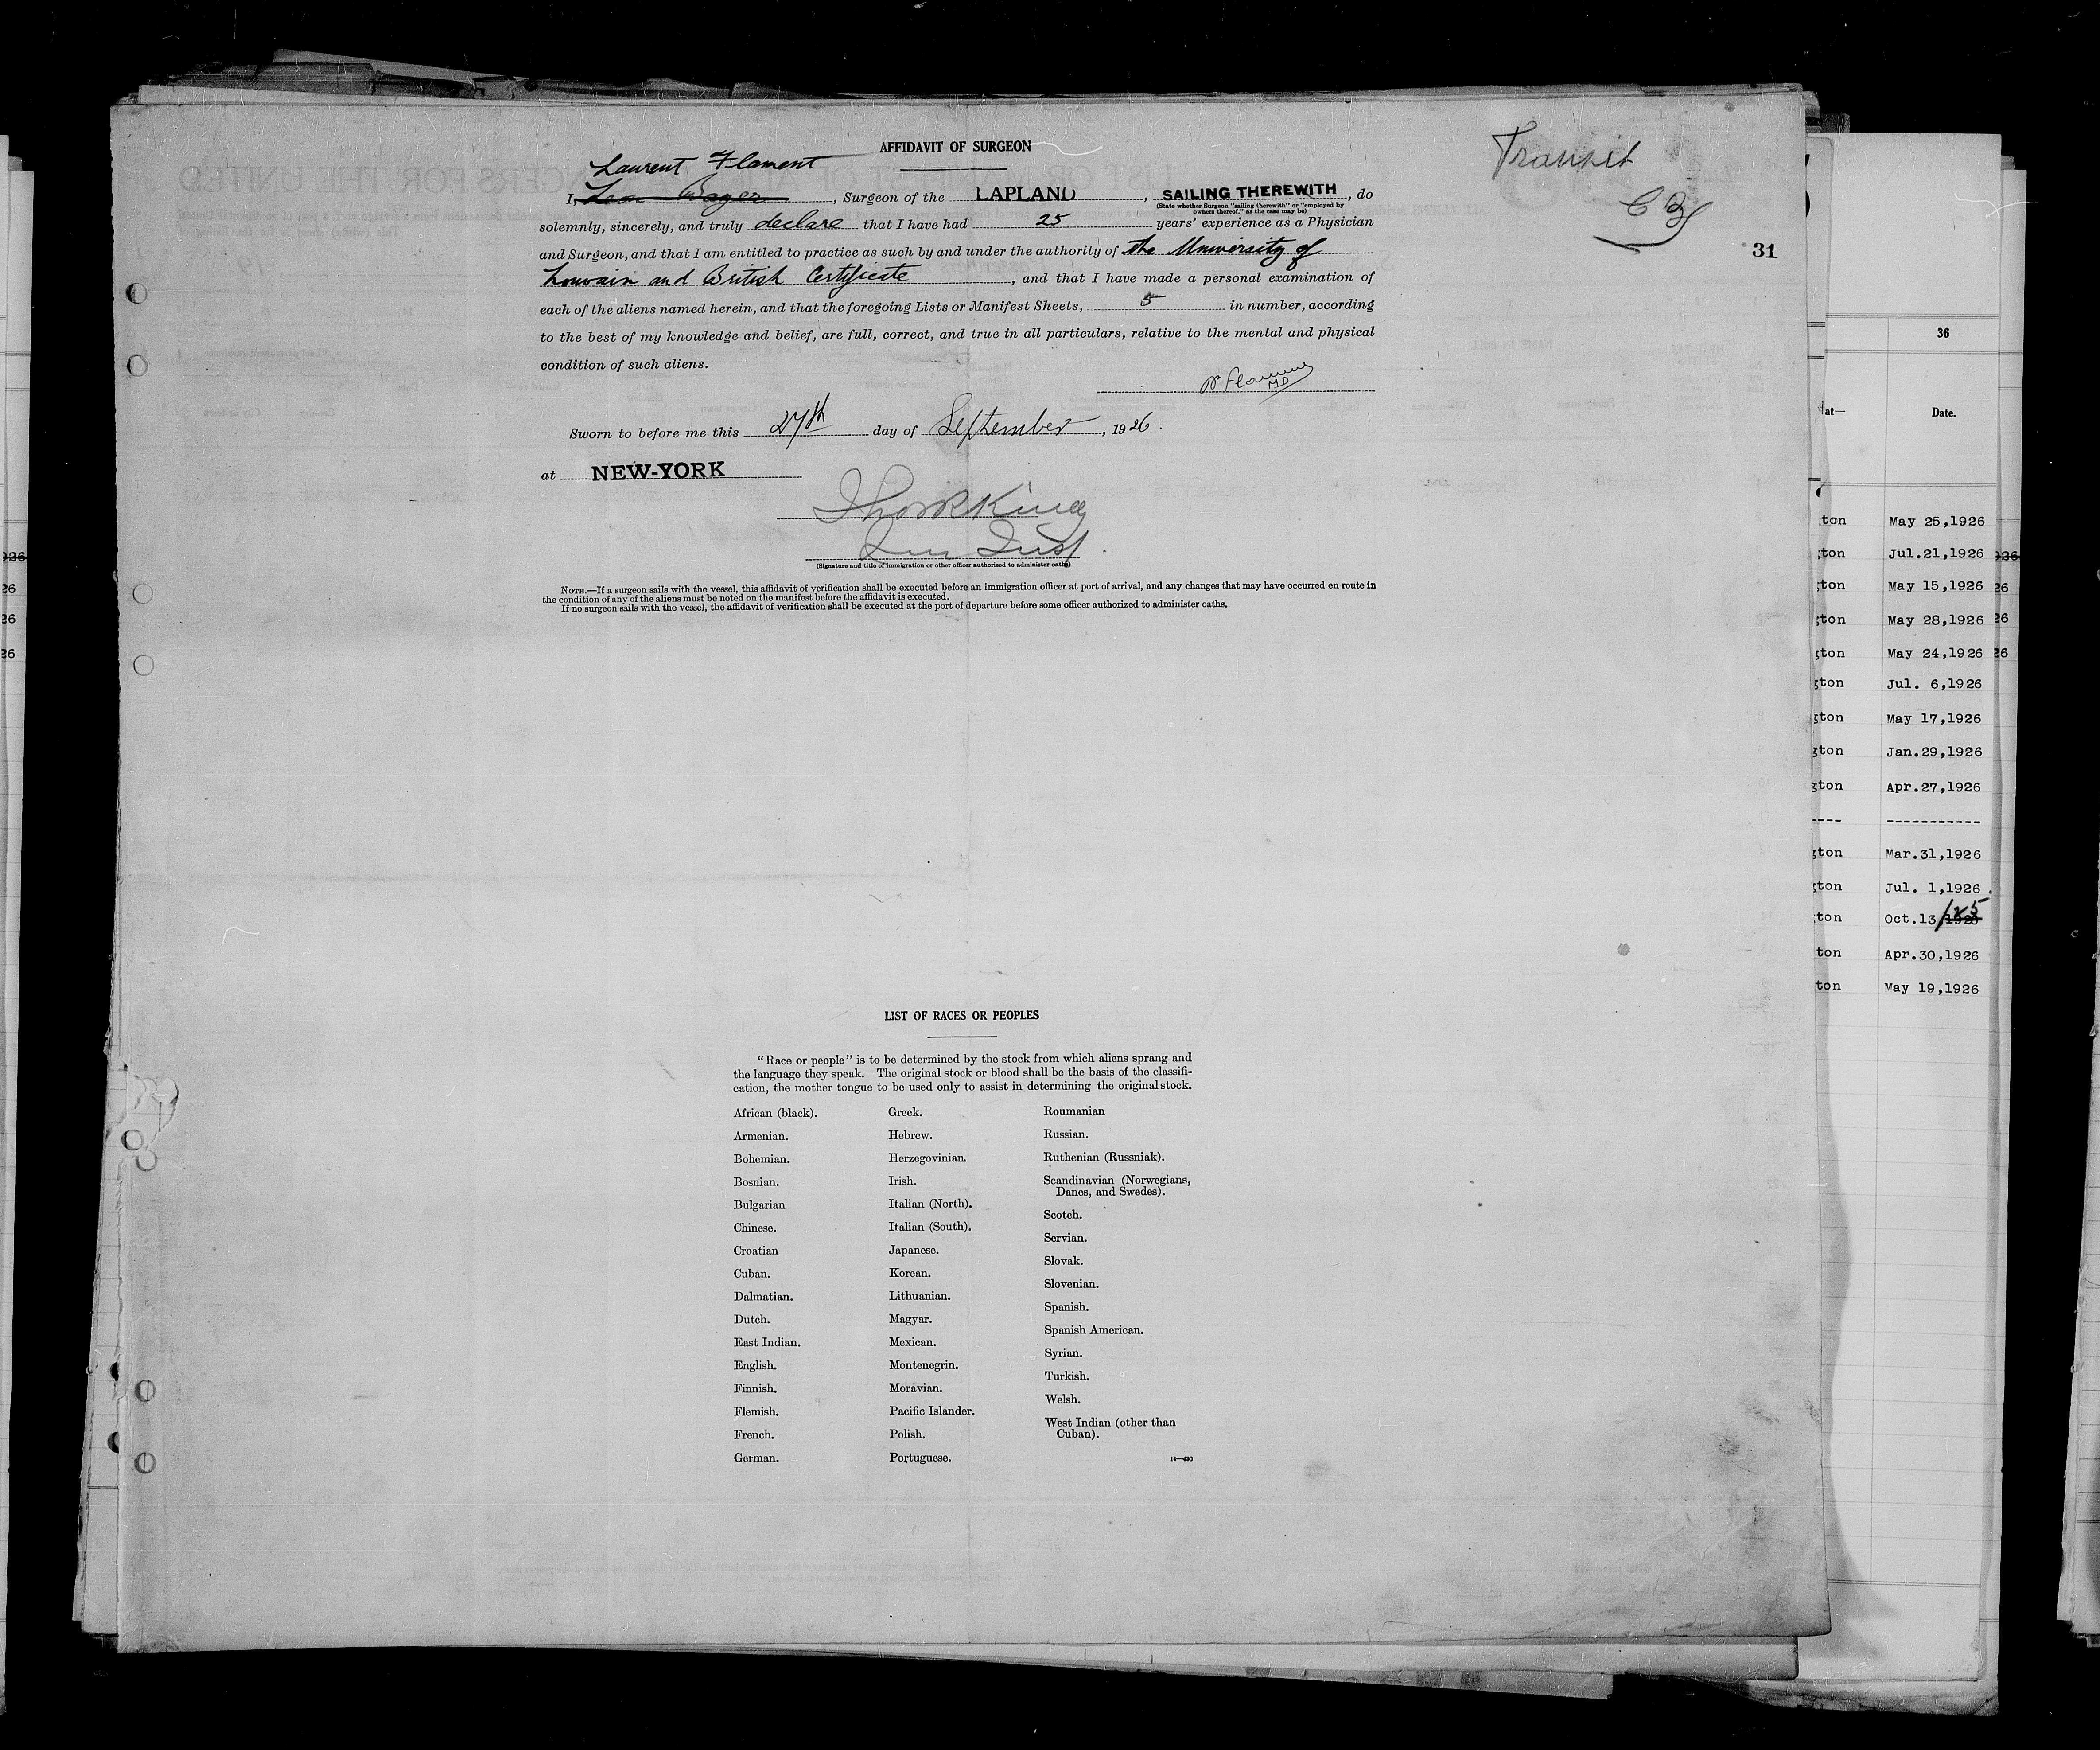 AFFIDAVIT OF SURGEON
Transit
Laurent Flament
I, , Surgeon of the LAPLAND, SAILING THEREWITH, do
(State whether Surgeon "sailing therewith" or "employed by
owners thereof," as the case may be)
solemnly, sincerely, and truly declare that I have had 25 years' experience as a Physician
and Surgeon, and that I am entitled to practice as such by and under the authority of the University of
Louvain and British Certificate, and that I have made a personal examination of
each of the aliens named herein, and that the foregoing Lists or Manifest Sheets, 5 in number, according
to the best of my knowledge and belief, are full, correct, and true in all particulars, relative to the mental and physical
condition of such aliens.
31
MD
Sworn to before me this 27th day of September, 1926.
at NEW-YORK
King
(Signature and title of immigration or other officer authorized to administer oaths)
NOTE.—If a surgeon sails with the vessel, this affidavit of verification shall be executed before an immigration officer at port of arrival, and any changes that may have occurred en route in
the condition of any of the aliens must be noted on the manifest before the affidavit is executed.
If no surgeon sails with the vessel, the affidavit of verification shall be executed at the port of departure before some officer authorized to administer oaths.
LIST OF RACES OR PEOPLES
"Race or people" is to be determined by the stock from which aliens sprang and
the language they speak. The original stock or blood shall be the basis of the classifi-
cation, the mother tongue to be used only to assist in determining the original stock.
African (black).
Armenian.
Bohemian.
Bosnian.
Bulgarian
Chinese.
Croatian
Cuban.
Dalmatian.
Dutch.
East Indian.
English.
Finnish.
Flemish.
French.
German.
Greek.
Hebrew.
Herzegovinian.
Irish.
Italian (North).
Italian (South).
Japanese.
Korean.
Lithuanian.
Magyar.
Mexican.
Montenegrin.
Moravian.
Pacific Islander.
Polish.
Portuguese.
Roumanian
Russian.
Ruthenian (Russniak).
Scandinavian (Norwegians,
Danes, and Swedes).
Scotch.
Servian.
Slovak.
Slovenian.
Spanish.
Spanish American.
Syrian.
Turkish.
Welsh.
West Indian (other than
Cuban).
14—430
36
at—
Date.
ton May 25,1926
ton Jul.21,1926
ton May 15,1926
ton May 28,1926
gton May 24,1926
gton Jul. 6,1926
gton May 17,1926
gton Jan.29,1926
gton Apr.27,1926
---- -----------
gton Mar.31,1926
gton Jul. 1,1926.
ton Oct.13
ton Apr.30,1926
ton May 19,1926